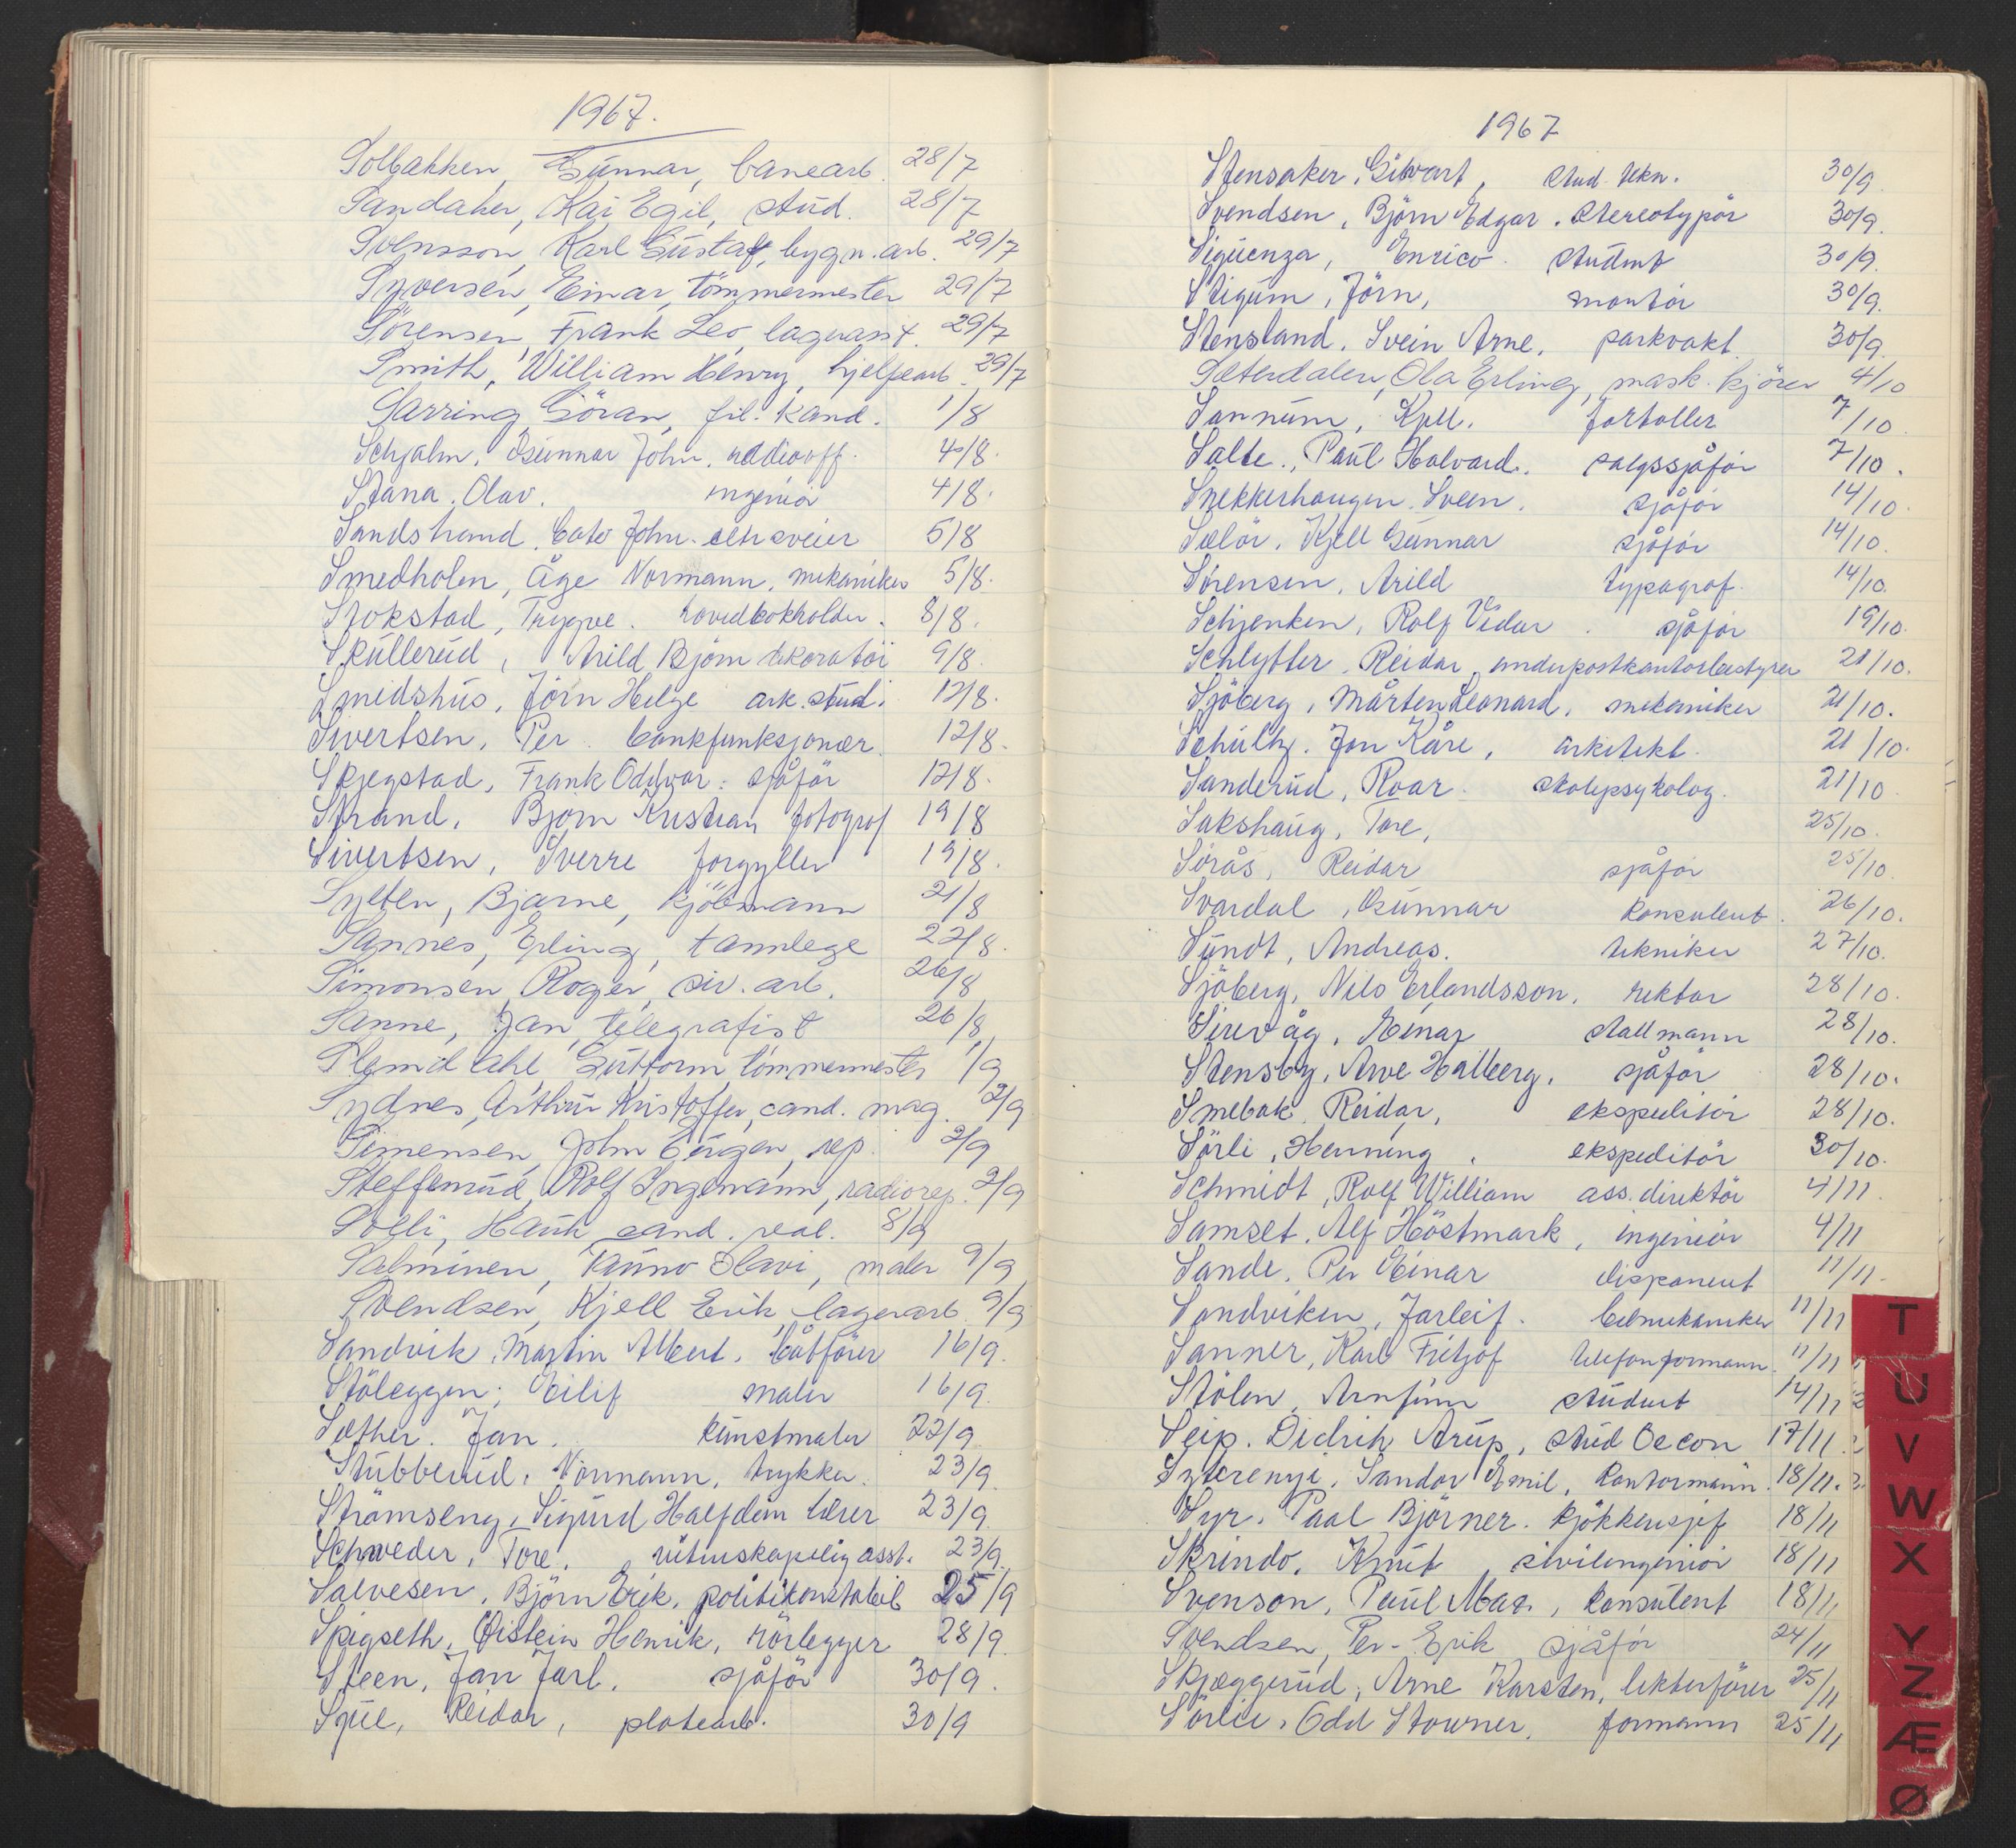 1967.
Solbakken, Gunnar, banearb. 28/7
Sandaker, Kai Egil, stud. 28/7
Svensson, Karl Gustaf, bygn.arb. 29/7
Syversen, Einar, tömmermester 29/7
Sörensen, Frank Leo, lagerass't. 29/7
Smith, William Henry, hjelpearb. 29/7
Sarring, Göran, fil. kand. 1/8
Schjalm, Gunnar John, radiooff. 4/8.
Stana, Olav. ingeniör 4/8.
Sandstrand, Cato John. eltr sveier 5/8
Smedholen, Åge Normann, mekaniker 5/8.
Stokstad, Trygve. hovedbokholder. 8/8.
Skullerud, Arild Björn dekoratör 9/8.
Smidshus, Jörn Helge ark. stud. 12/8.
Sivertsen, Per. bankfunksjonær. 12/8.
Skjegstad, Frank Oddvar: sjåför 12/8.
Strand, Björn Kristian fotograf 19/8
Sivertsen, Sverre forgyller 19/8.
Sylten, Bjarne, kjöbmann 21/8
Sannes, Erling, tannlege 22/8.
Simonsen, Roger, siv. arb. 26/8
Sanne, Jan, telegrafist 26/8
Slemdahl Guttorm tömmermester 1/9
Sydnes, Arthur Kristoffer, cand. mag. 2/9
Simensen, John Eugen, rep. 2/9
Steffenrud, Rolf Ingemann, radiorep. 2/9
Solli, Hauk, cand. real. 8/9
Salminen, Tauno Olavi, maler 9/9
Svendsen, Kjell Erik, lagerarb. 9/9
Sandvik, Martin Albert, båtförer 16/9.
Stöleggen, Eilif maler 16/9.
Sæther. Jan. kunstmaler 22/9.
Stubberud, Normann, trykker. 23/9.
Strömseng, Sigurd Halfdan lærer 23/9.
Schrøder, Tore, vitenskapelig asst. 23/9.
Salvesen, Björn Erik, politikonstabel 25/9
Spigseth, Øistein Henrik, rörlegger 28/9.
Steen, Jan Jarl, sjåför 30/9.
Sque, Reidar, platearb. 30/9
1967
Stensaker, Sivart, stud. tekn. 30/9.
Svendsen, Björn Edgar. stereotypör 30/9.
Siguenza, Enrico. student 30/9.
Stigum, Jörn, montör 30/9.
Stensland, Svein Arne, parkvakt. 30/9.
Sæterdalen, Ola Erling, mask. kjörer 4/10
Sannum, Kjell, fortoller 7/10.
Salte, Paul Halvard. salgssjåför 7/10.
Snekkerhaugen. Sveen. sjåför 14/10.
Solör, Kjell Gunnar sjåför 14/10.
Sörensen, Arild typograf. 14/10.
Schjenken, Rolf Vidar. sjåför 19/10.
Schlytter, Reidar, underpostkontorbestyrer 21/10.
Sjöberg, Mårten Leonard, mekaniker 21/10.
Schultz. Jon Kåre, arkitekt. 21/10.
Sanderud, Roar. skolepsykolog. 21/10
Sakshaug, Tore, 25/10.
Sörås, Reidar sjåför 25/10.
Svardal, Gunnar konsulent. 26/10.
Sundt, Andreas. tekniker 27/10.
Sjöberg, Nils Erlandsson, rektor 28/10.
Sirevåg, Einar stallmann 28/10.
Stensby, Arve Halberg, sjåför 28/10.
Smebak, Reidar, ekspeditör 28/10.
Sörli, Henning, ekspeditör 30/10.
Schmidt, Rolf William ass. direktör 4/11.
Samset, Alf Höstmark, ingeniör 4/11
Sande, Per Einar disponent 11/11.
Sandviken, Jarleif. bilmekaniker 11/11
Sanner, Karl Fritjof telefonformann. 11/11
Stölen, Arnfinn student 14/11
Seip. Didrik Arup, stud Oecon 17/11
Szterenyi, Sandor Emil, kontormann. 18/11.
Syr, Paal Björner. kjökkensjef 18/11
Skrindo, Knut, sivilingeniör 18/11
Svenson, Paul Max, konsulent 18/11
Svendsen, Per-Erik sjåför 24/11
Skjæggerud, Arne Karsten, lekterförer 25/11
Sörlie, Odd Stowner, formann 25/11
T
U
V
W
X
Y
Z
Æ
Ø